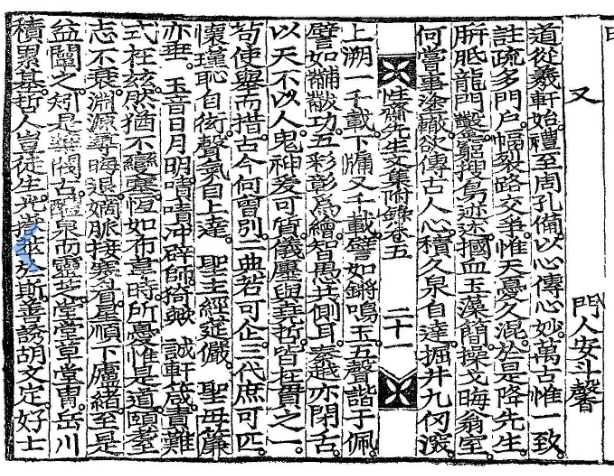 又 門人安斗馨
道從羲軒始禮至周孔備以心傳心妙萬古惟一致
註疏多門戶幅裂路交爭惟天憂久混於是降先生
胼胝龍門鑿窮搜禹迹迷摑血玉藻簡操戈晦翁室
何嘗事塗欲傳古人心積久泉自達掘井九仞深
性齋先生文集附錄卷五 二十
上溯一千載下牖又千載譬如鏘鳴玉五聲諧于佩
譬如黼黻功五彩彰爲繪智愚共側耳秦越亦閉舌
以天不以人鬼神爰可質儀廉與哲皆在貫之一
苟使擧而措古今何曾別二典若可企三代庶可匹
懷瑾恥自衒聲氣自上達 聖主經延儼 聖母簾
亦垂 玉音日月明嘖嘖冲辟師猗歟 誠軒箴責難
式在玆然猶不變塞恒如布韋時所憂惟是道頤
志不衰淵源晦退嫡脈接寒星順下廬緒至是
益闡之矧是華閥古醴泉而靈芝堂堂草堂胄岳川
積累基哲人豈徒生光嶽於斯善誘胡文定好士